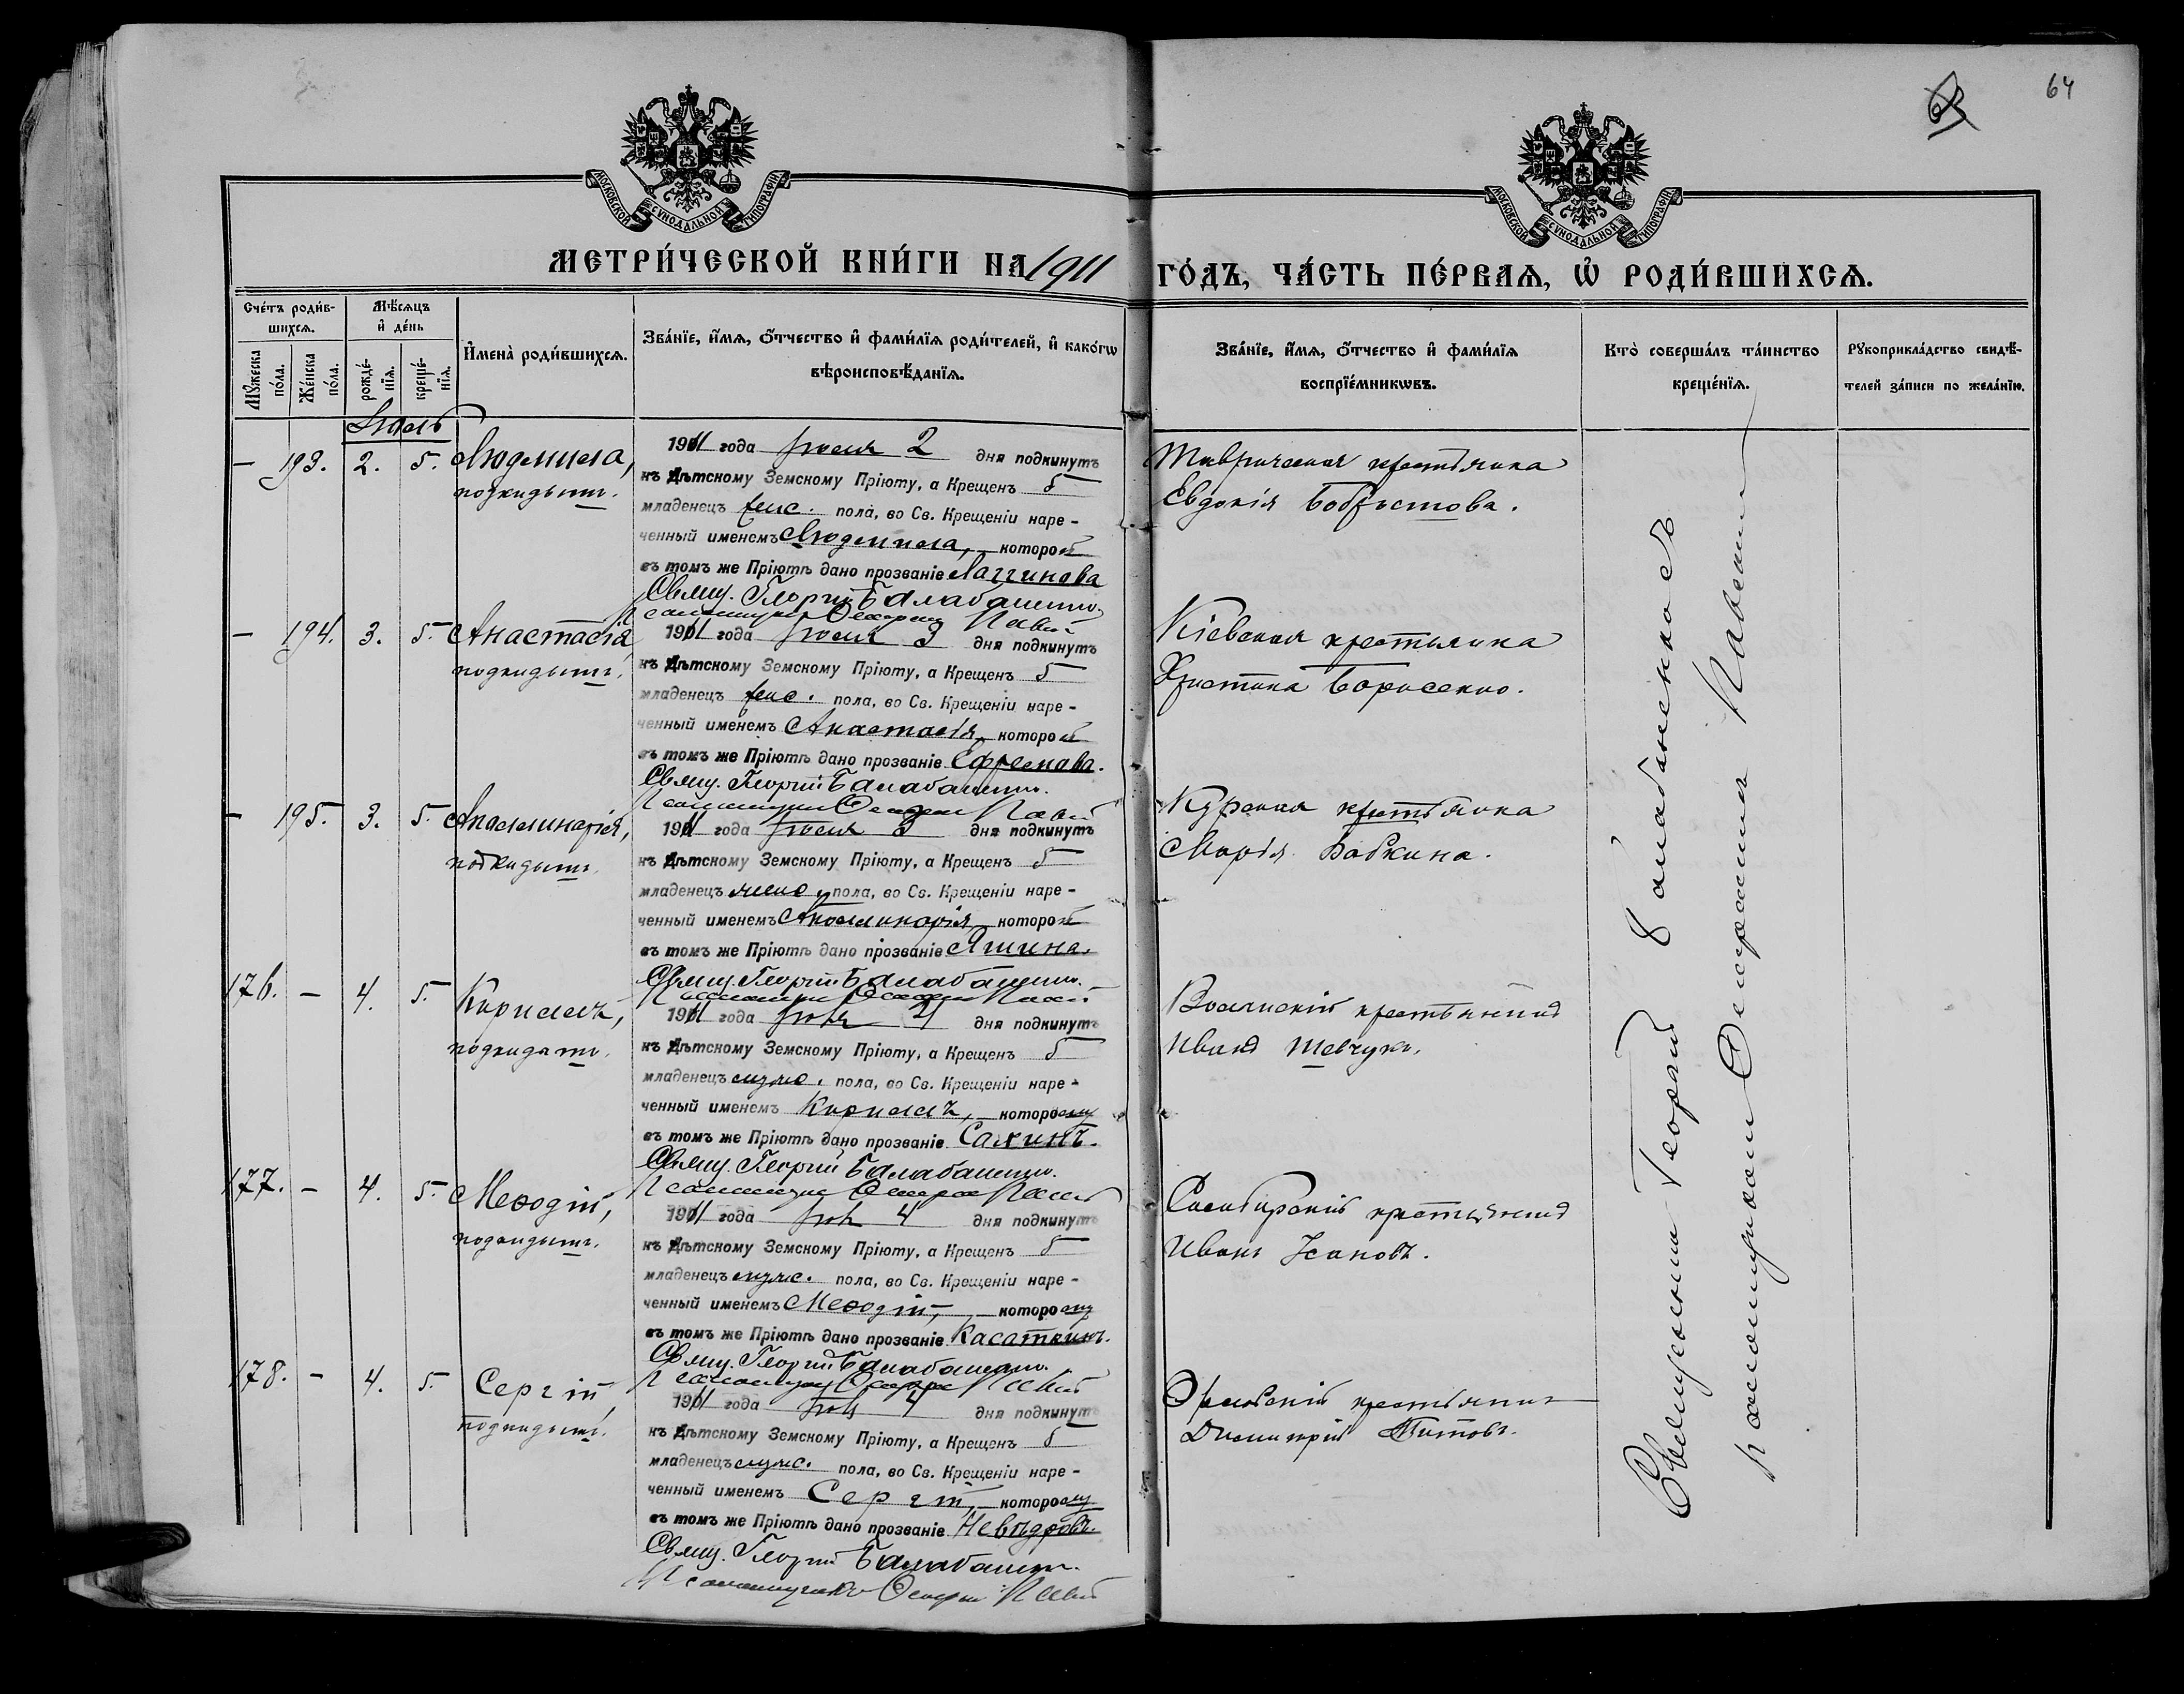 64
МОСКОВСКОЙ СѴНОДАЛЬНОЙ ТИПОГРАФІИ
МОСКОВСКОЙ СѴНОДАЛЬНОЙ ТИПОГРАФІИ
МЕТРИ́ЧЕСКОЙ КНИ́ГИ НА 1911
ГО́ДЪ, ЧА́СТЬ ПЕ́РВАѦ, Ѡ҆ РОДИ́ВШИХСѦ.
Сче́тъ роди́в-
шихсѧ.
Мѣ́сѧцъ
и҆ де́нь
Мꙋ́жеска
по́ла.
Же́нска
по́ла.
рожде́-
нїѧ.
креще́-
нїѧ.
И҆мена̀ роди́вшихсѧ.
Зва́нїе, и҆́мѧ, ѻ҆́тчество и҆ фами́лїѧ роди́телей, и҆ како́гѡ
вѣроисповѣ́данїѧ.
Зва́нїе, и҆́мѧ, ѻ҆́тчество и҆ фами́лїѧ
воспрїе́мникѡвъ.
Кто̀ соверша́лъ та́инство
креще́нїѧ.
Рꙋкоприкла́дство свидѣ́-
телей за́писи по жела́нїю.
Іюль
— 193. 2. 5. Людмила,
подкидыш.
1911 года Іюля 2 дня подкинутъ
къ Дѣтскому Земскому Пріюту, а Крещенъ 5
младенецъ жнс. пола, во Св. Крещеніи наре-
ченный именемъ Людмила, которой
въ томъ же Пріютѣ дано прозваніе
Свящ. Георгій Балабаненко
Таврическая крестьянка
Евдокія
— 194. 3. 5. Анастасія
подкидыш.
1911 года Іюля 3 дня подкинутъ
къ Дѣтскому Земскому Пріюту, а Крещенъ 5
младенецъ жнс. пола, во Св. Крещеніи наре-
ченный именемъ Анастасія, которой
въ томъ же Пріютѣ дано прозваніе Ефремова.
Свящ. Георгій Балабаненко.
Кіевская крестьянка
Христина Борисенко.
— 195. 3. 5. Аполлинарія,
подкидыш.
1911 года Іюля 3 дня подкинутъ
къ Дѣтскому Земскому Пріюту, а Крещенъ 5
младенецъ женс. пола, во Св. Крещеніи наре-
ченный именемъ Аполлинарія, которой
въ томъ же Пріютѣ дано прозваніе Яшина.
Свящ. Георгій Балабаненко.
Курская крестьянка
Марія Бабкина.
176. — 4. 5. Кириллъ,
подкидыш.
1911 года Іюля 4 дня подкинутъ
къ Дѣтскому Земскому Пріюту, а Крещенъ 5
младенецъ мужс. пола, во Св. Крещеніи наре-
ченный именемъ Кириллъ, которому
въ томъ же Пріютѣ дано прозваніе
Свящ. Георгій Балабаненко.
Волынскій крестьянинъ
Иванъ Шевчукъ.
177. — 4. 5. Меѳодій,
подкидыш.
1911 года Іюля 4 дня подкинутъ
къ Дѣтскому Земскому Пріюту, а Крещенъ 5
младенецъ мужс. пола, во Св. Крещеніи наре-
ченный именемъ Меѳодій, которому
въ томъ же Пріютѣ дано прозваніе Касаткинъ.
Свящ. Георгій Балабаненко.
Симбирскій крестьянинъ
Иванъ
178. — 4. 5. Сергій
подкидыш.
1911 года Іюля 4 дня подкинутъ
къ Дѣтскому Земскому Пріюту, а Крещенъ 5
младенецъ мужс. пола, во Св. Крещеніи наре-
ченный именемъ Сергій, которому
въ томъ же Пріютѣ дано прозваніе
Свящ. Георгій Балабаненко.
Орловскій крестьянинъ
Димитрій Титовъ.
Священникъ Георгій Балабаненко съ